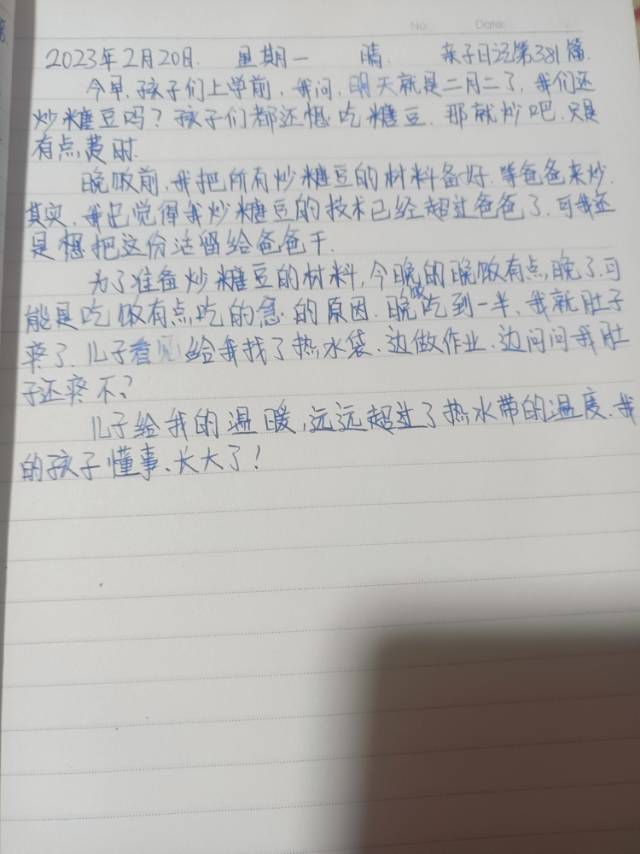 No. Date.
2023年2月20日. 星期一 晴. 亲子日记第381篇.
今早,孩子们上学前,我问,明天就是二月二了,我们还
炒糖豆吗?孩子们都还想吃糖豆.那就炒吧.只是
有点费时.
晚饭前,我把所有炒糖豆的材料备好.等爸爸来炒.
其实,我已觉得我炒糖豆的技术已经超过爸爸了.可我还
是想把这份活留给爸爸干.
为了准备炒糖豆的材料,今晚的晚饭有点晚了.可
能是吃饭有点吃的急的原因.晚饭吃到一半,我就肚子
疼了.儿子看见给我找了热水袋、边做作业、边问问我肚
子还疼不?
儿子给我的温暖,远远超过了热水带的温度.我
的孩子懂事、长大了!